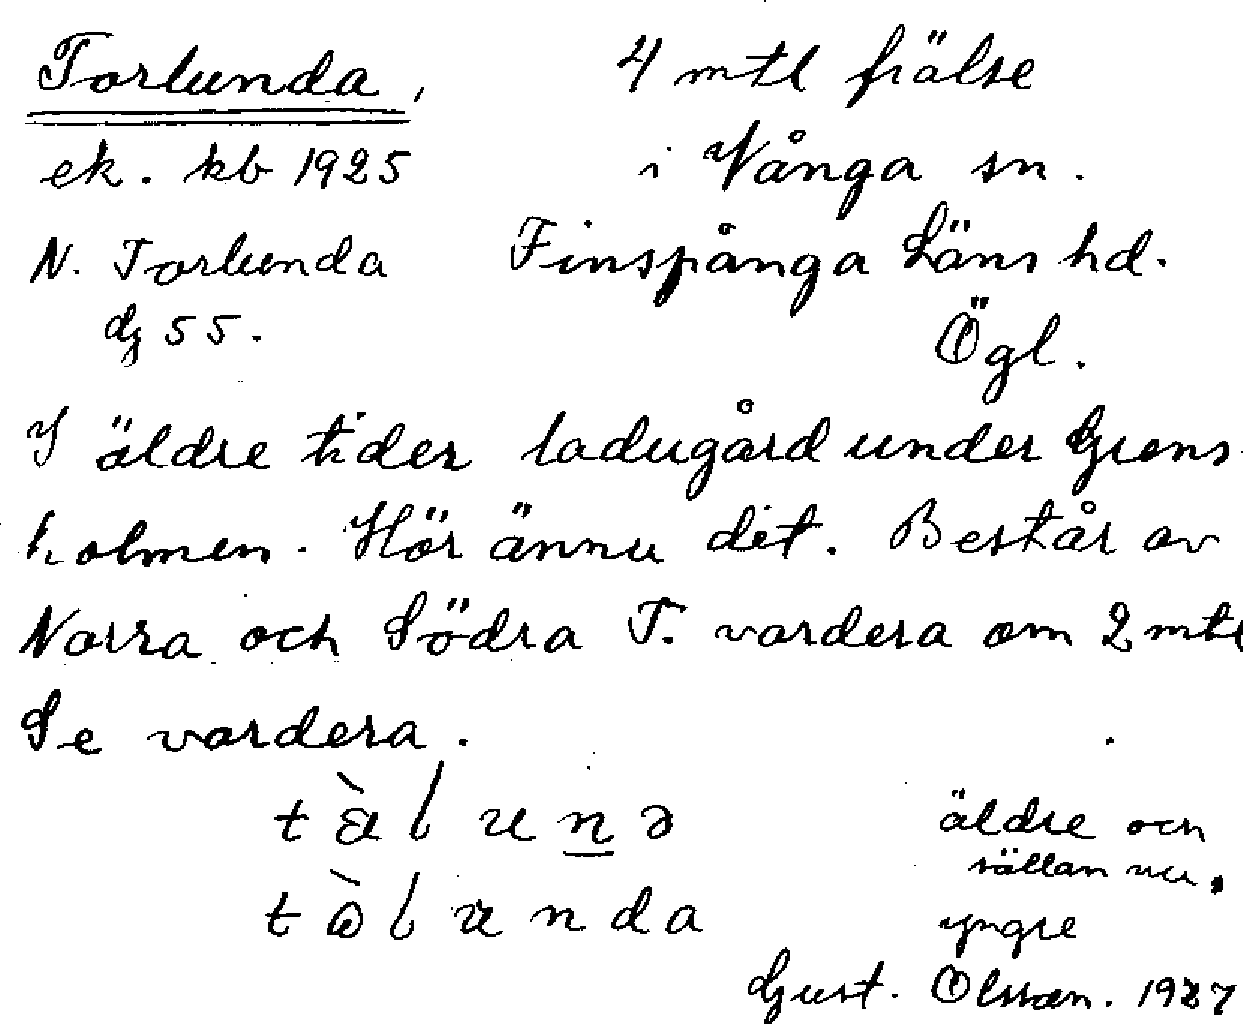 Torlunda, 4 mtl frälse
ek. kb 1925 i Vånga sn.
N. Torlunda Finspånga Läns hd.
dz 55. Ögl.
I äldre tider ladugård under Grens-
holmen. Hör ännu dit. Består av
Norra och Södra T. vardera om 2 mtl
Se vardera.
äldre och
sällan nu.
yngre
Gust. Olsson. 1927